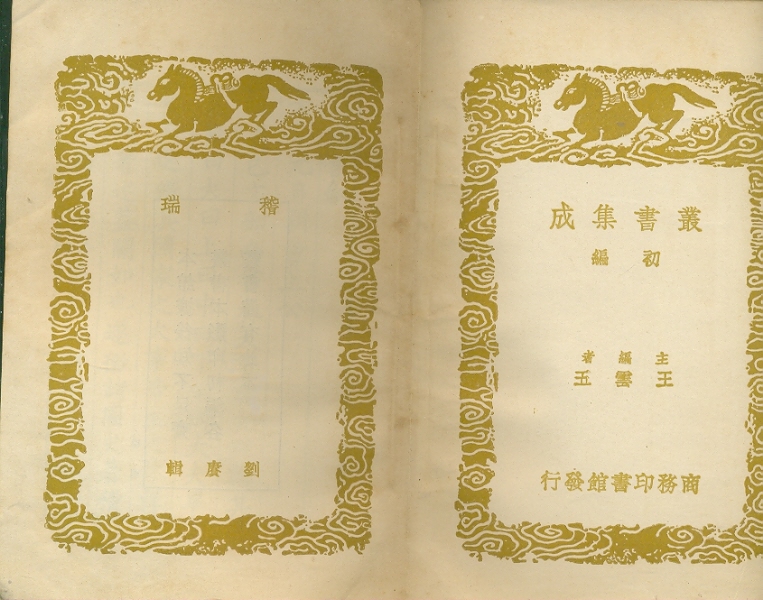 叢書集成
初編
主編者
王雲五
商務印書館發行
稽瑞
劉賡輯